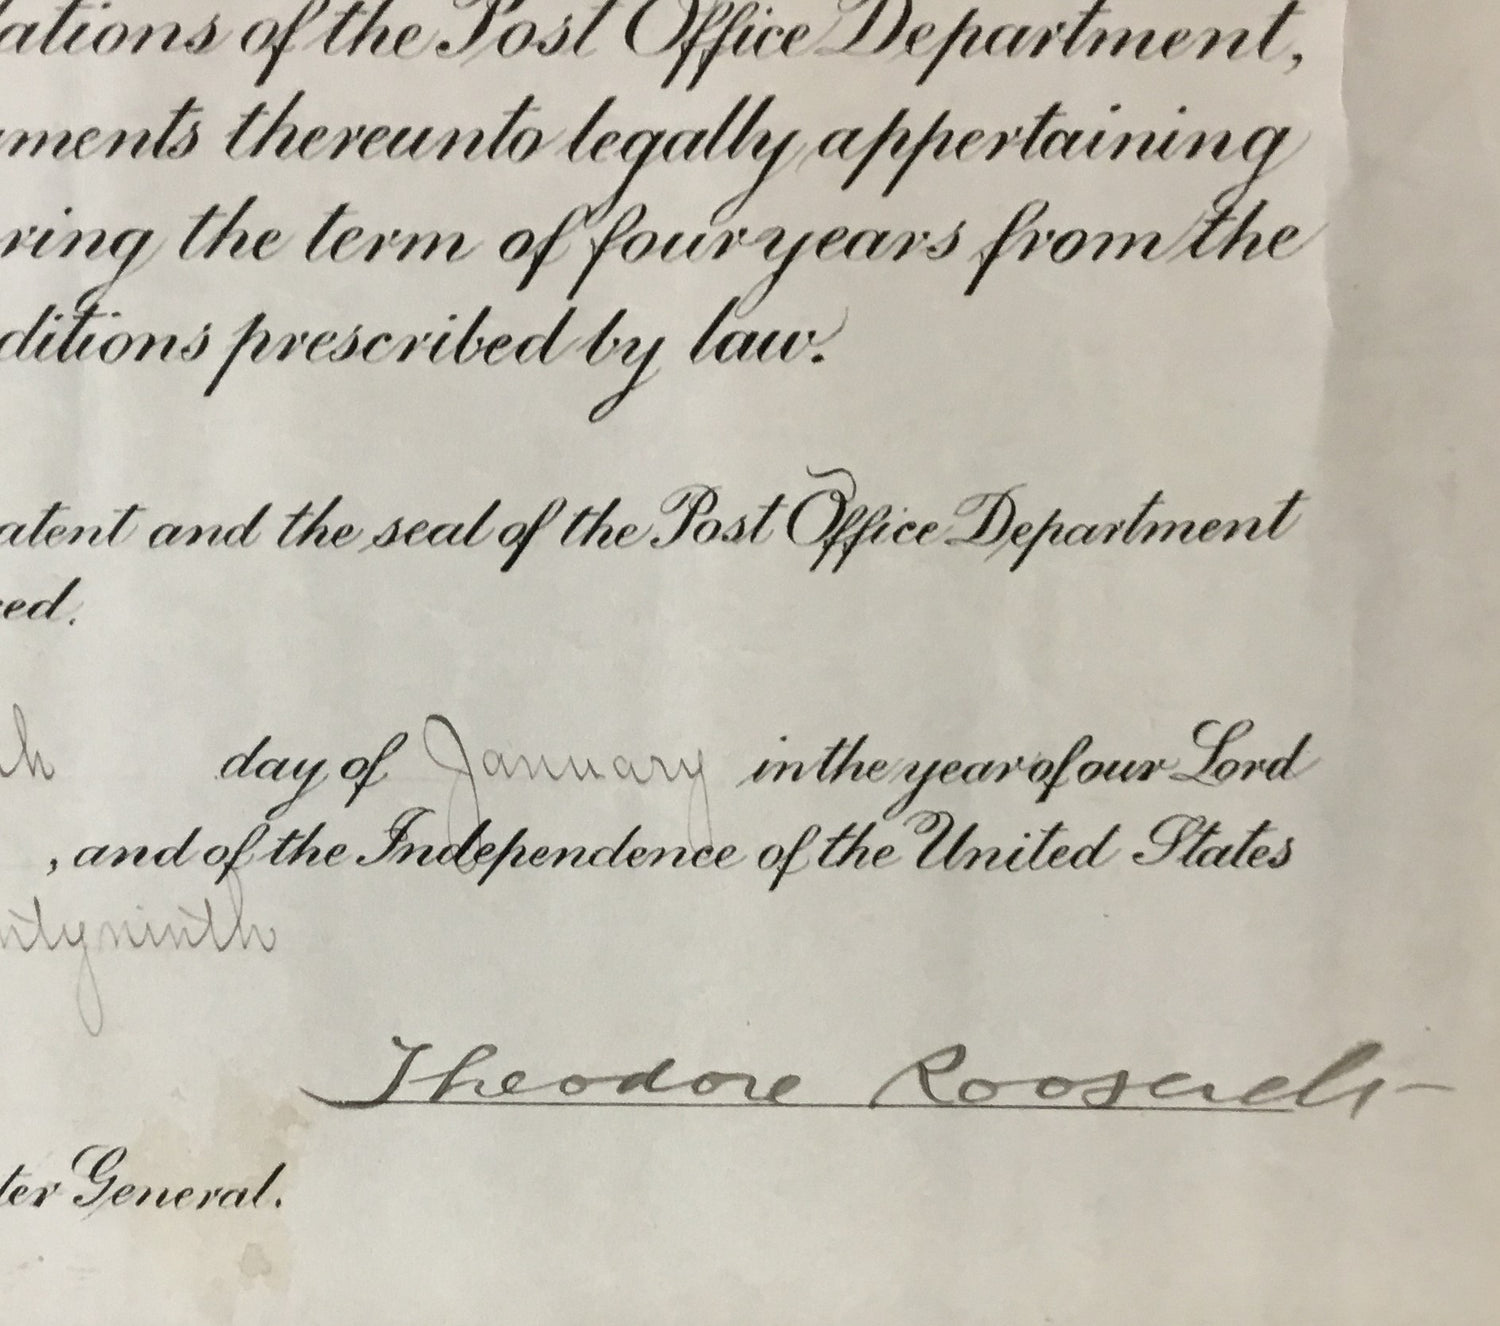 ations of the Post Office Department,
ments thereunto legally appertaining
ring the term of four years from the
ditions prescribed by law.
atent and the seal of the Post Office Department
ed.
h day of January in the year of our Lord
, and of the Independence of the United States
ntyninth
Theodore Roosevelt
ter General.